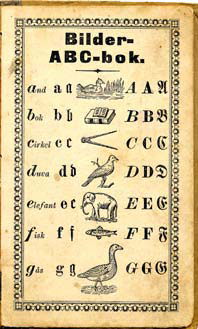 Bilder-
ABC-bok.
and a 𝔞 A A 𝔄
bok b 𝔟 B B 𝔅
cirkel c 𝔠 C C ℭ
duva d 𝔡 D D 𝔇
elefant e 𝔢 E E 𝔈
fisk f 𝔣 F F 𝔉
gås g 𝔤 G G 𝔊